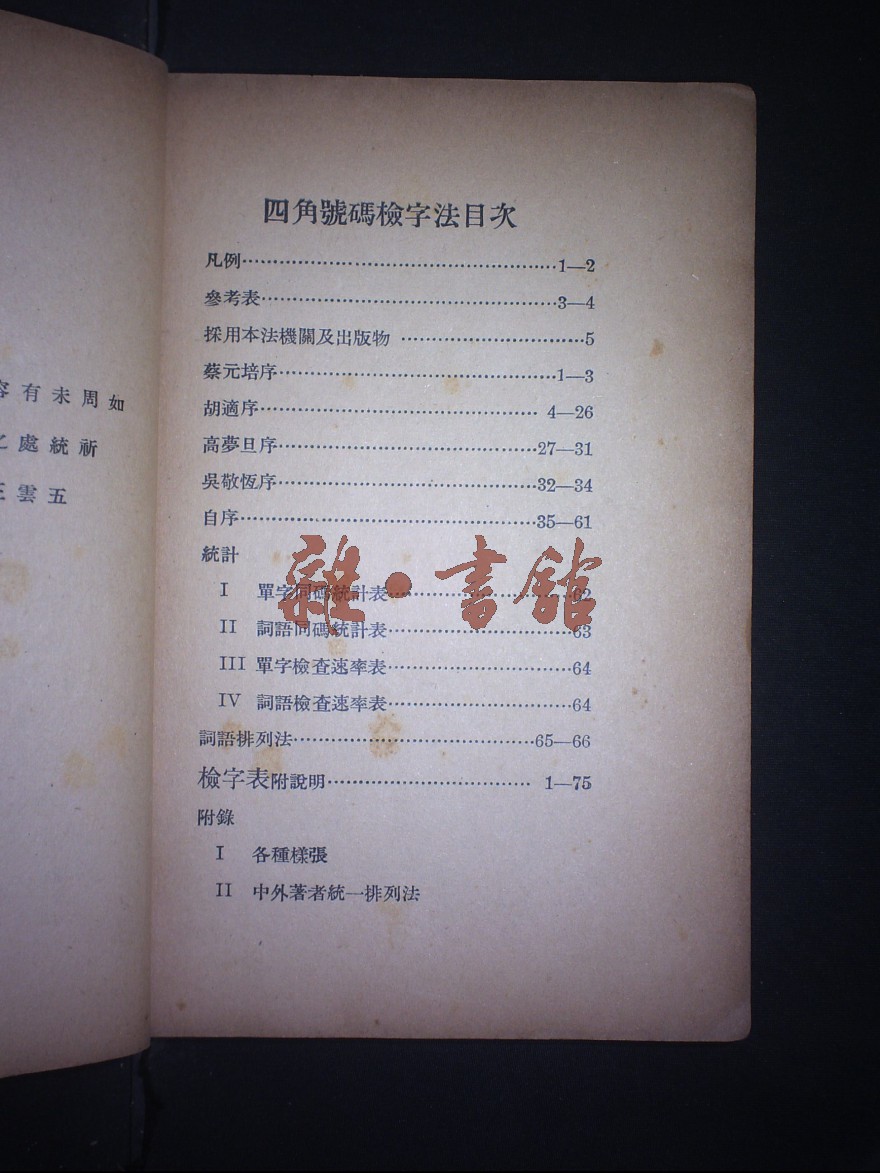 四角號碼檢字法目次
凡例…………………………………………1—2
參考表………………………………………3—4
採用本法機關及出版物 …………………………5
蔡元培序……………………………………1—3
胡適序…………………………………… 4—26
高夢旦序…………………………………27—31
吳敬恆序…………………………………32—34
自序………………………………………35—61
統計
I 單字同碼統計表…………………………62
II 詞語同碼統計表…………………………63
III 單字檢查速率表…………………………64
IV 詞語檢查速率表…………………………64
詞語排列法………………………………65—66
檢字表附說明………………………… 1—75
附錄
I 各種樣張
II 中外著者統一排列法
雜·書館
有未周如
處統祈
雲五